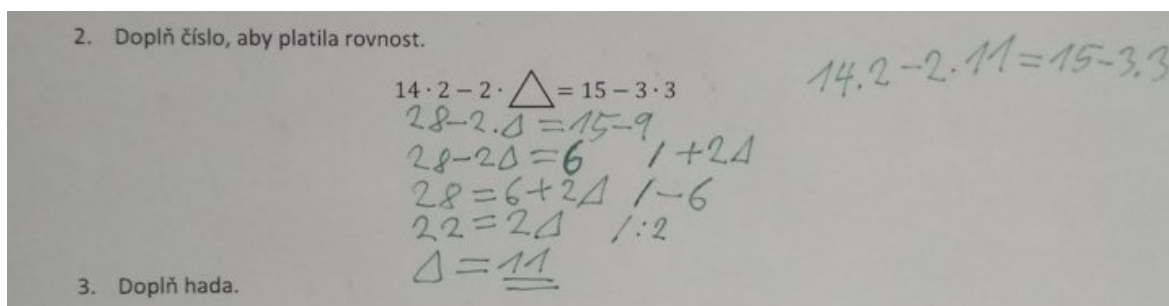 2. Doplň číslo, aby platila rovnost.
14 · 2 − 2 · △ = 15 − 3 · 3
14.2−2.11=15−3.3
28−2.△=15−9
28−2△=6 /+2△
28=6+2△ /−6
22=2△ /:2
△=11
3. Doplň hada.